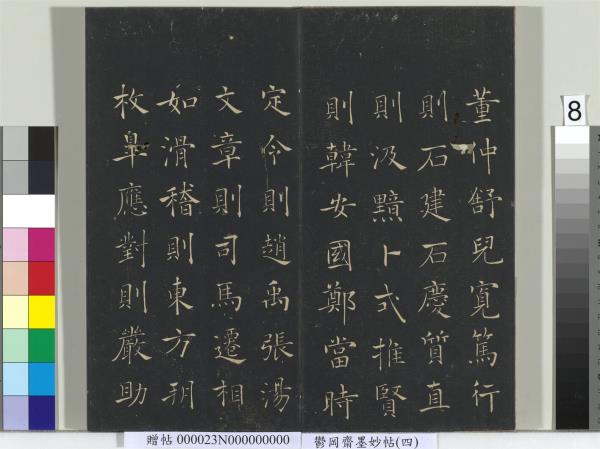 董仲舒兒寬篤行
則石建石慶質直
則汲黯卜式推賢
則韓安國鄭當時
定令則趙禹張湯
文章則司馬遷相
如滑稽則東方朔
枚皐應對則嚴助
8
贈帖 000023N000000000
鬱岡齋墨妙帖(四)